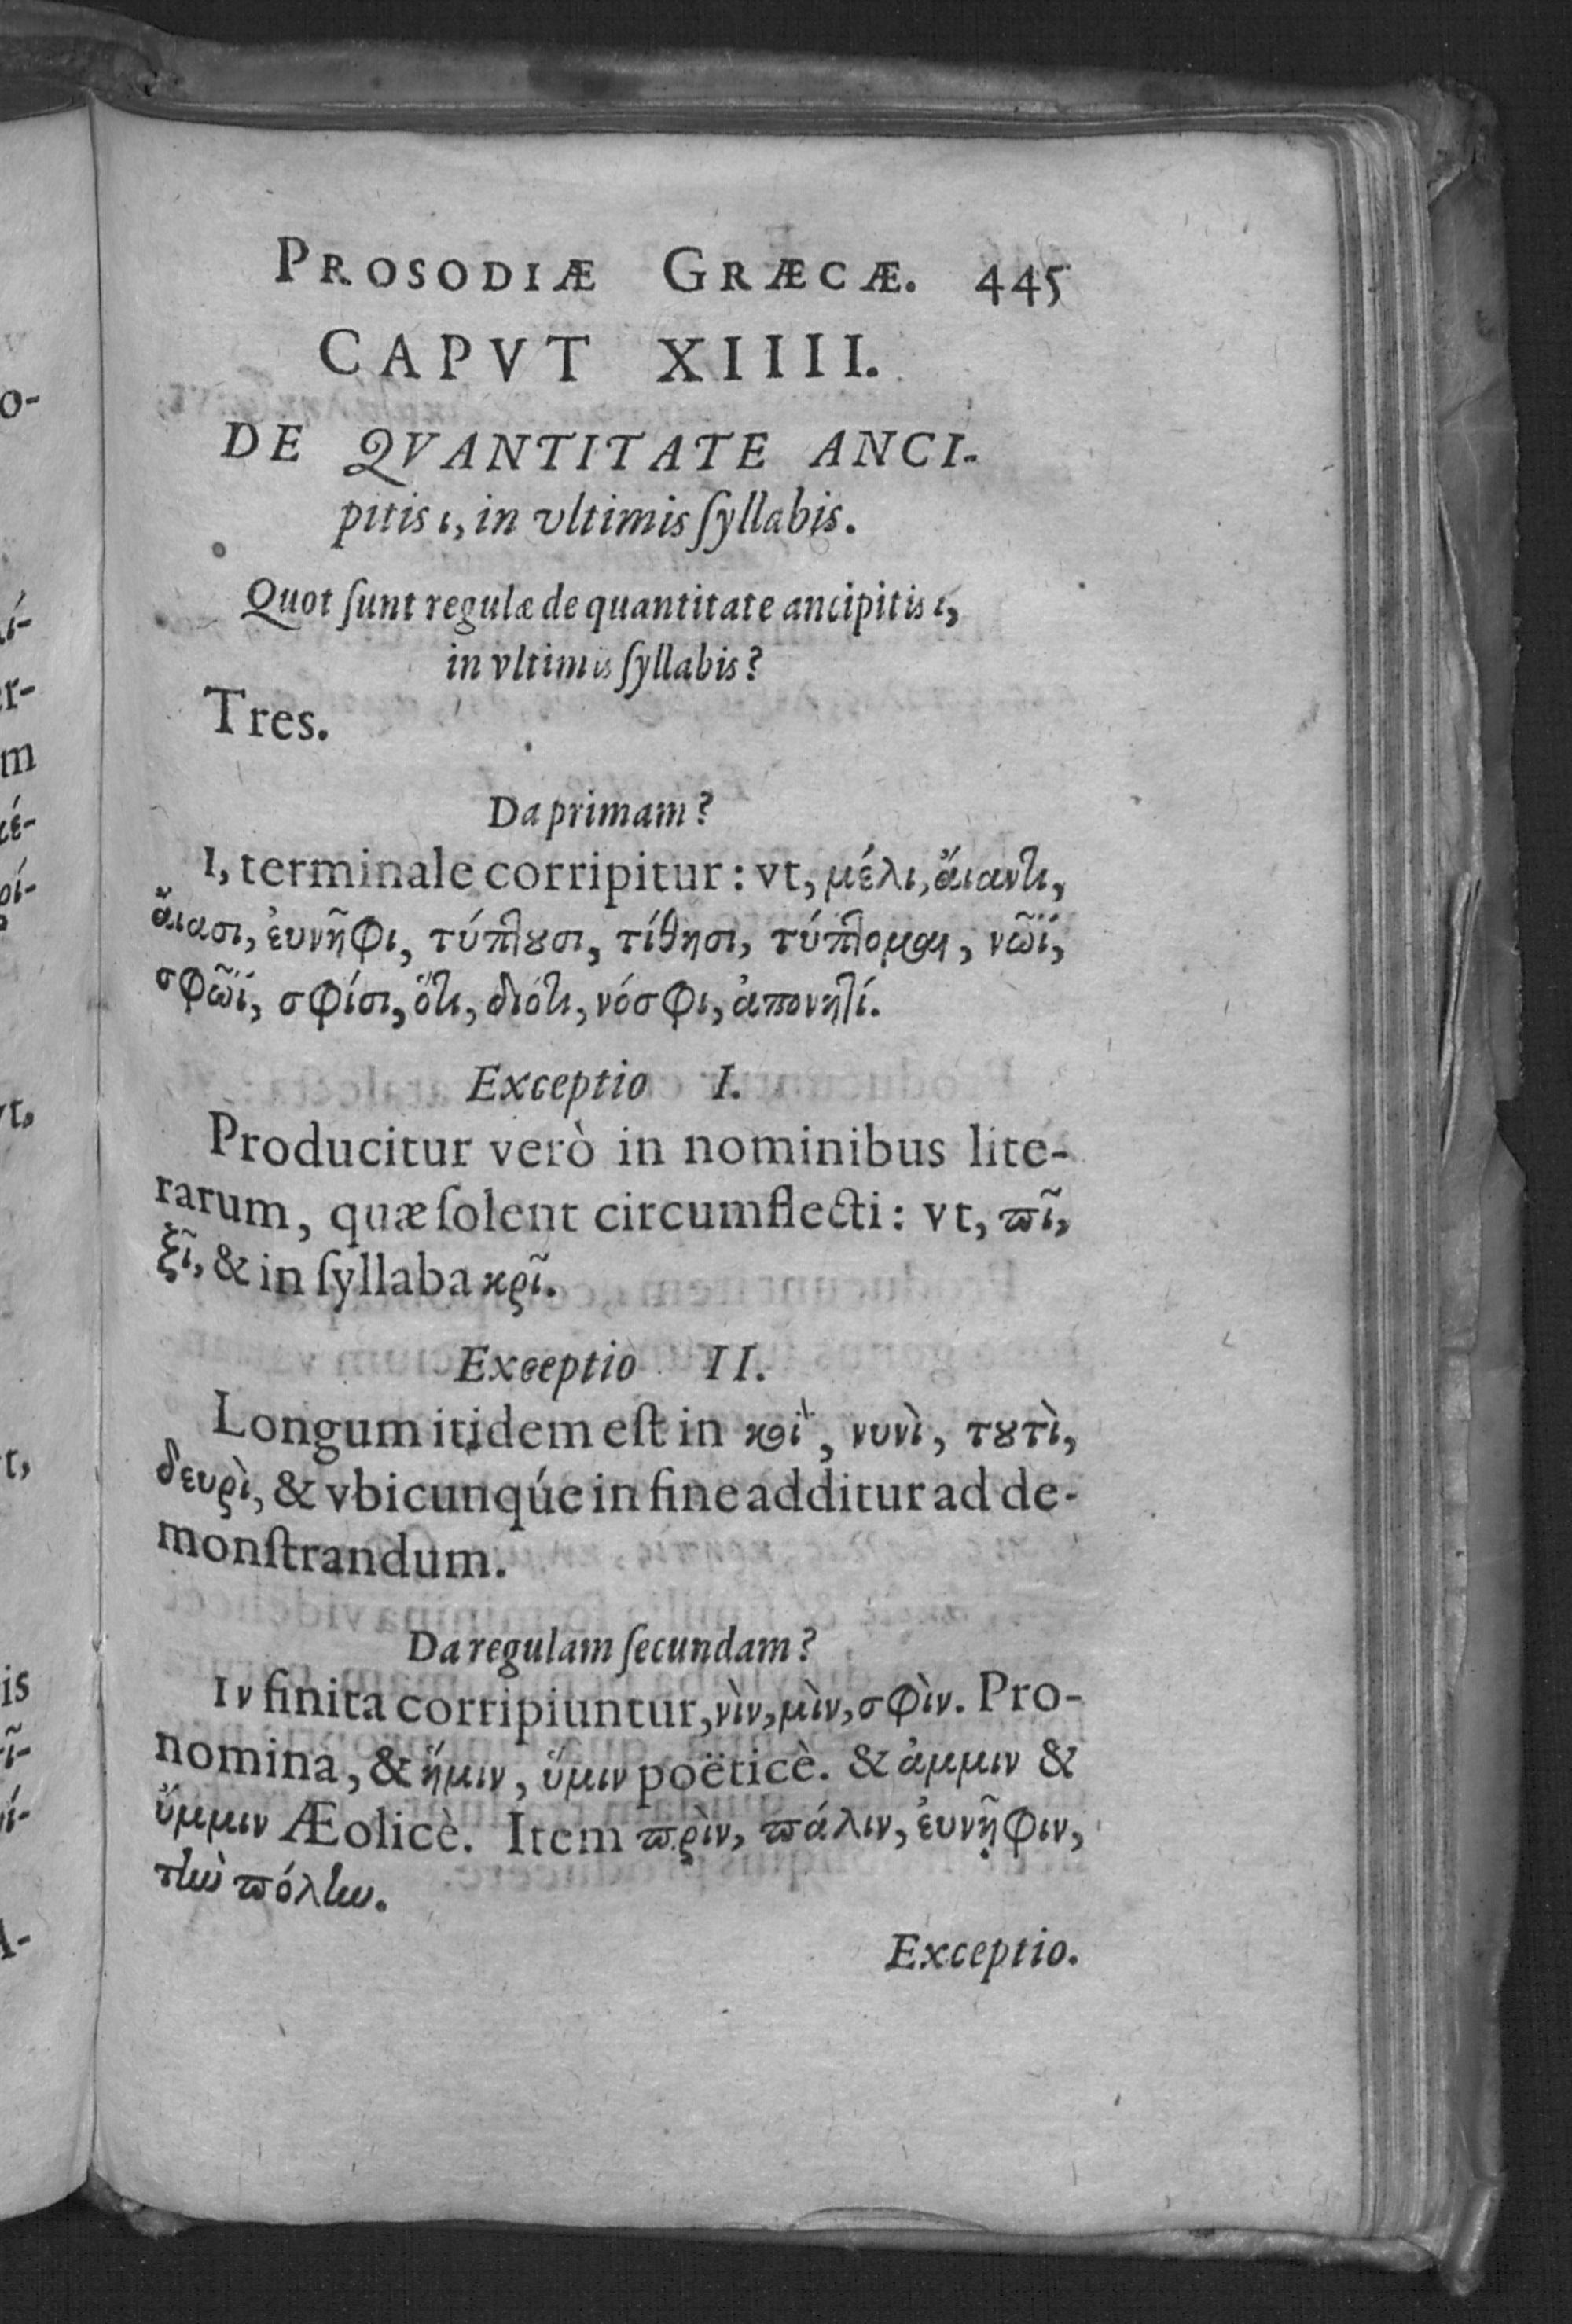 PROSODIÆ GRÆCÆ. 445
CAPVT XIIII.
DE QVANTITATE ANCI-
pitis ι, in vltimis ſyllabis.
Quot ſunt regulæ de quantitate ancipitis ι,
in vltimis ſyllabis?
Tres.
Da primam?
I, terminale corripitur: vt, μέλι, ἄιαντι,
ἄιασι, ἐυνῆφι, τύπτουσι, τίθησι, τύπτομαι, νῶϊ,
σφῶϊ, σφίσι, ὅτι, διότι, νόσφι, ἀπονητί.
Exceptio I.
Producitur verò in nominibus lite-
rarum, quæ ſolent circumflecti: vt, πῖ,
ξῖ, & in ſyllaba κρῖ.
Exceptio II.
Longum itidem eſt in νυνὶ, τουτὶ,
δευρὶ, & vbicunqúe in fine additur ad de-
monſtrandum.
Da regulam ſecundam?
Iν finita corripiuntur, νὶν, μὶν, σφὶν. Pro-
nomina, & ἥμιν, ὕμιν poëticè. & ἀμμιν &
ὕμμιν Æolicè. Item πρὶν, πάλιν, ἐυνῆφιν,
πόλιν.
Exceptio.